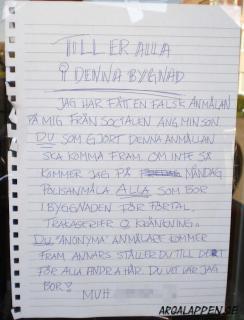 TILL ER ALLA
I DENNA BYGNAD
JAG HAR FÅTT EN FALSK ANMÄLAN
PÅ MIG FRÅN SOCIALEN ANG MIN SON.
DU SOM GJORT DENNA ANMÄLLAN
SKA KOMMA FRAM. OM INTE SÅ
KOMMER JAG PÅ MÅNDAG
POLISANMÄLA ALLA SOM BOR
I BYGNADEN FÖR FÖRTAL,
TRAKASERIER & KRÄNKNING.
DU "ANONYMA" ANMÄLARE KOMMER
FRAM ANNARS STÄLLER DU TILL DET
FÖR ALLA ANDRA HÄR. DU VET VAR JAG
BOR!
MVH
ARGALAPPEN.SE